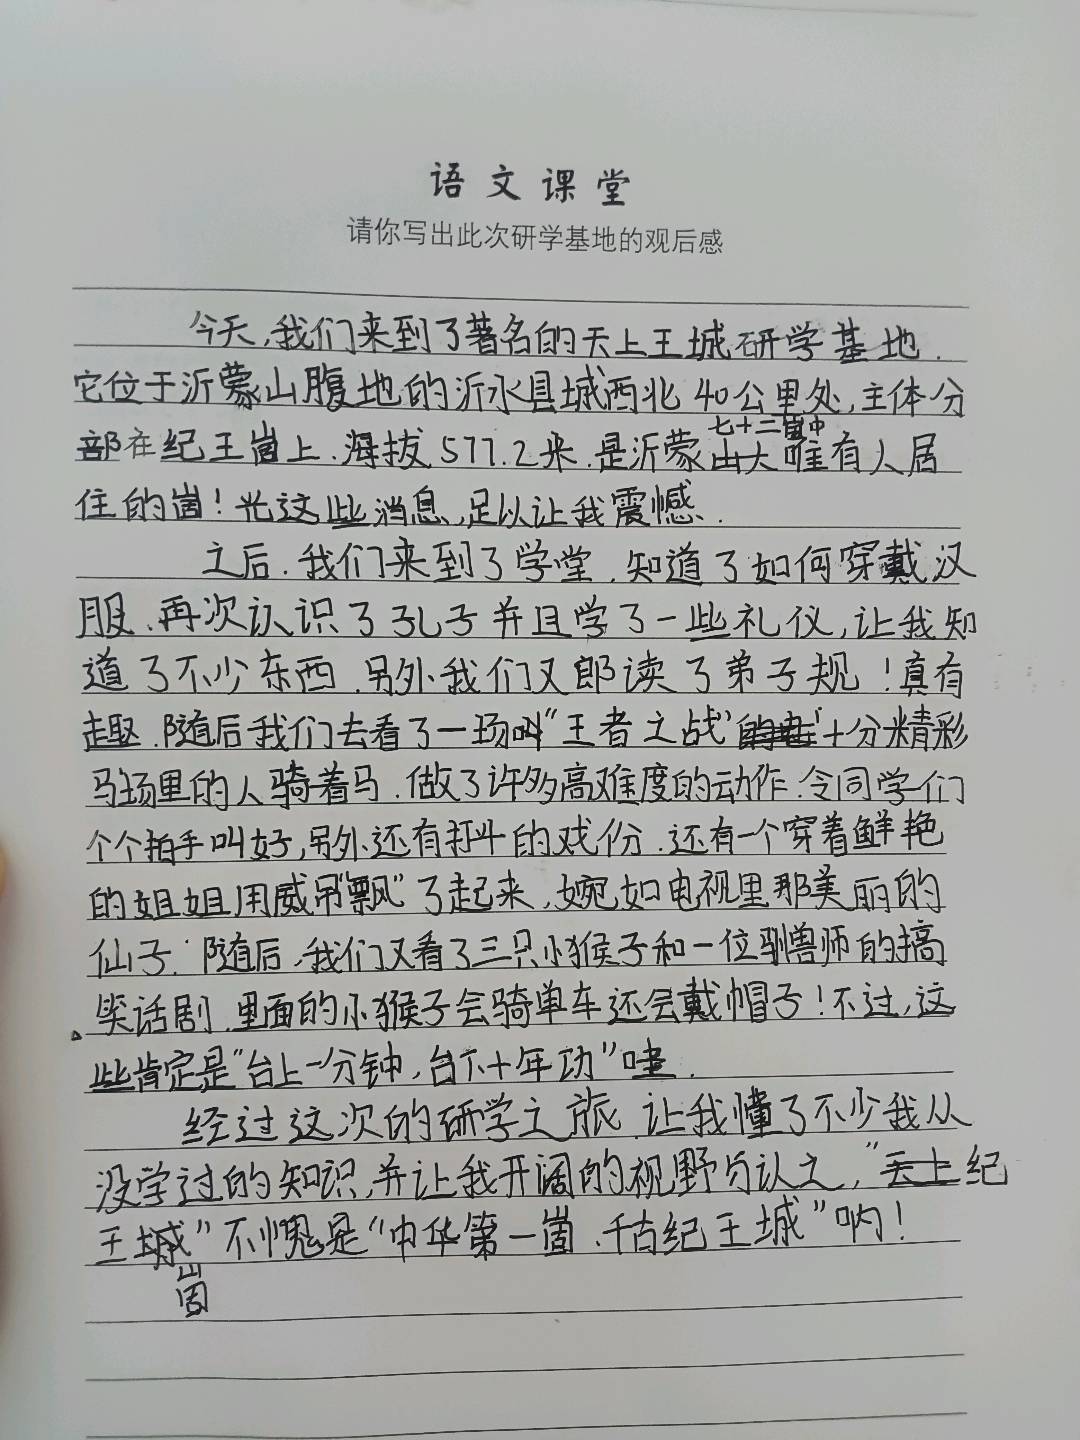 语文课堂
请你写出此次研学基地的观后感
今天,我们来到了著名的天上王城研学基地.
它位于沂蒙山腹地的沂水县城西北40公里处,主体分
七十二崮中
部在纪王崮上.海拔577.2米.是沂蒙山大唯有人居
住的崮!光这些消息,足以让我震憾.
之后.我们来到了学堂.知道了如何穿戴汉
服.再次认识了孔子并且学了一些礼仪,让我知
道了不少东西.另外我们又郎读了弟子规!真有
趣.随后我们去看了一场叫"王者之战"十分精彩
马场里的人骑着马.做了许多高难度的动作.令同学们
个个拍手叫好,另外还有打斗的戏份.还有一个穿着鲜艳
的姐姐用威吊"飘"了起来,婉如电视里那美丽的
仙子.随后,我们又看了三只小猴子和一位驯兽师的搞
笑话剧.里面的小猴子会骑单车还会戴帽子!不过,这
些肯定是"台上一分钟,台下十年功"哇.
经过这次的研学之旅.让我懂了不少我从
没学过的知识,并让我开阔的视野与认之,"天上纪
王城"不愧是"中华第一崮.千古纪王城"呐!
崮